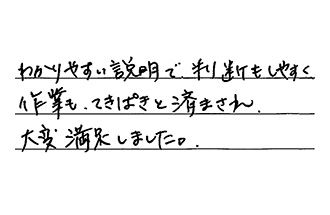 わかりやすい説明で、判断もしやすく
作業も、てきぱきと済まされ、
大変満足しました。